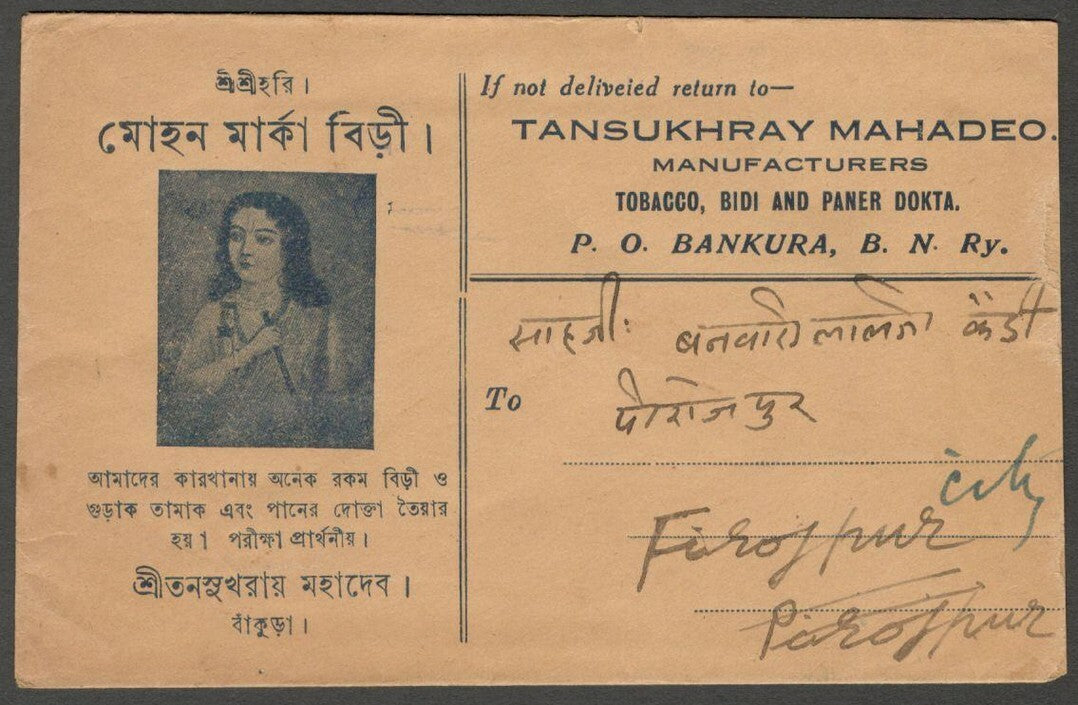 শ্রীশ্রীহরি।
মোহন মার্কা বিড়ী।
আমাদের কারখানায় অনেক রকম বিড়ী ও
গুড়াক তামাক এবং পানের দোক্তা তৈয়ার
হয়। পরীক্ষা প্রার্থনীয়।
শ্রীতনসুখরায় মহাদেব।
বাঁকুড়া।
If not deliveied return to—
TANSUKHRAY MAHADEO.
MANUFACTURERS
TOBACCO, BIDI AND PANER DOKTA.
P. O. BANKURA, B. N. Ry.
साहजी: बनवारीलालजी
To
पीरोजपुर
city
Firojpur
Pirojpur